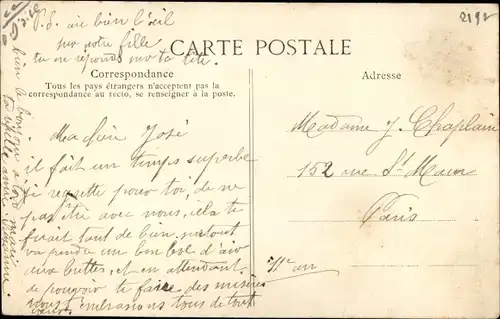 P.S. aie bien l'œil
sur notre fille
tu en réponds sur ta tête.
2191
CARTE POSTALE
Correspondance
Tous les pays étrangers n'acceptent pas la
correspondance au recto, se renseigner à la poste.
Adresse
Ma José
il fait un temps superbe
je regrette pour toi, de ne
pas être avec nous, cela te
ferait tant de bien surtout
va prendre un bon bol d'air
aux buttes, et en attendant
de pouvoir te faire des misères
nous t'embrassons tous de tout
cœur
Madame J. Chaplain
152 rue St Maur
Paris
bien le bonjour
ta vieille amie